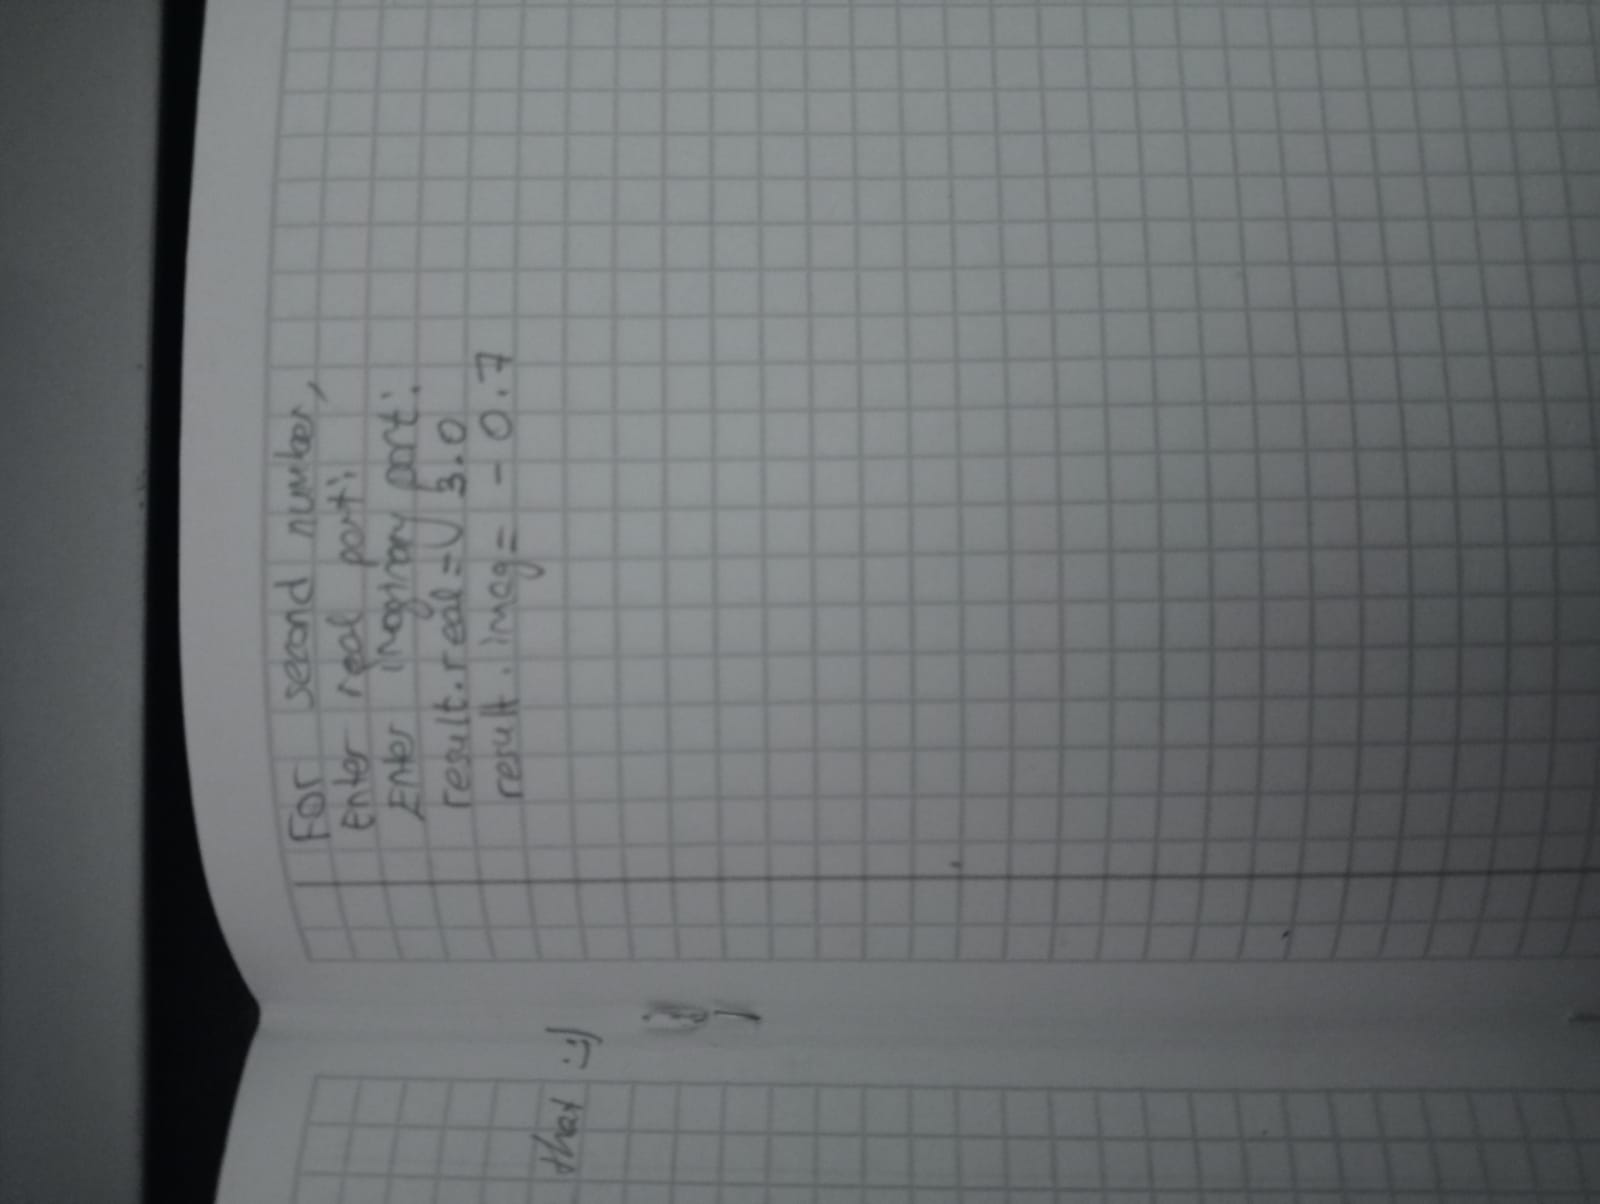 For second number,
Enter real part:
Enter imaginary part:
result.real = 3.0
result.imag = -0.7
that :)